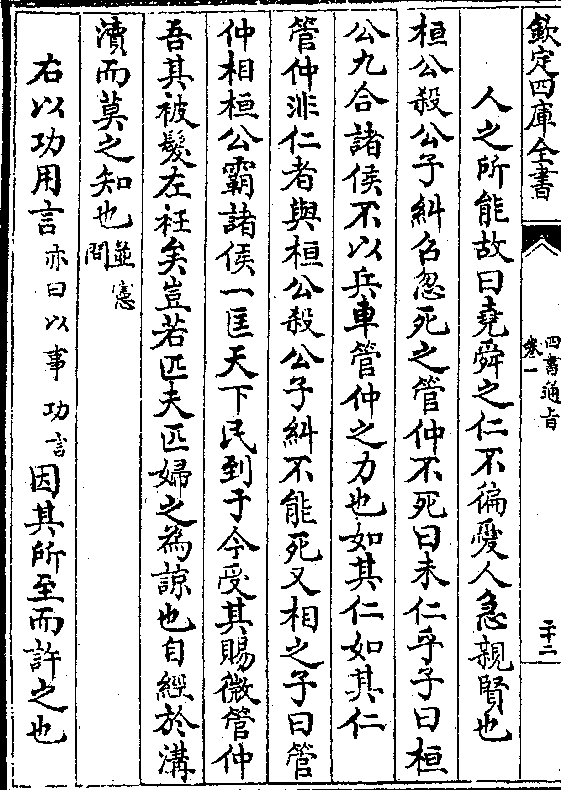 欽定四庫全書
四書通旨
卷一
二十二
人之所能故曰堯舜之仁不徧愛人急親賢也
桓公殺公子糾召忽死之管仲不死曰未仁乎子曰桓
公九合諸侯不以兵車管仲之力也如其仁如其仁
管仲非仁者與桓公殺公子糾不能死又相之子曰管
仲相桓公霸諸侯一匡天下民到于今受其賜微管仲
吾其被髮左衽矣豈若匹夫匹婦之為諒也自經於溝
瀆而莫之知也並憲問
右以功用言亦曰以事功言因其所至而許之也